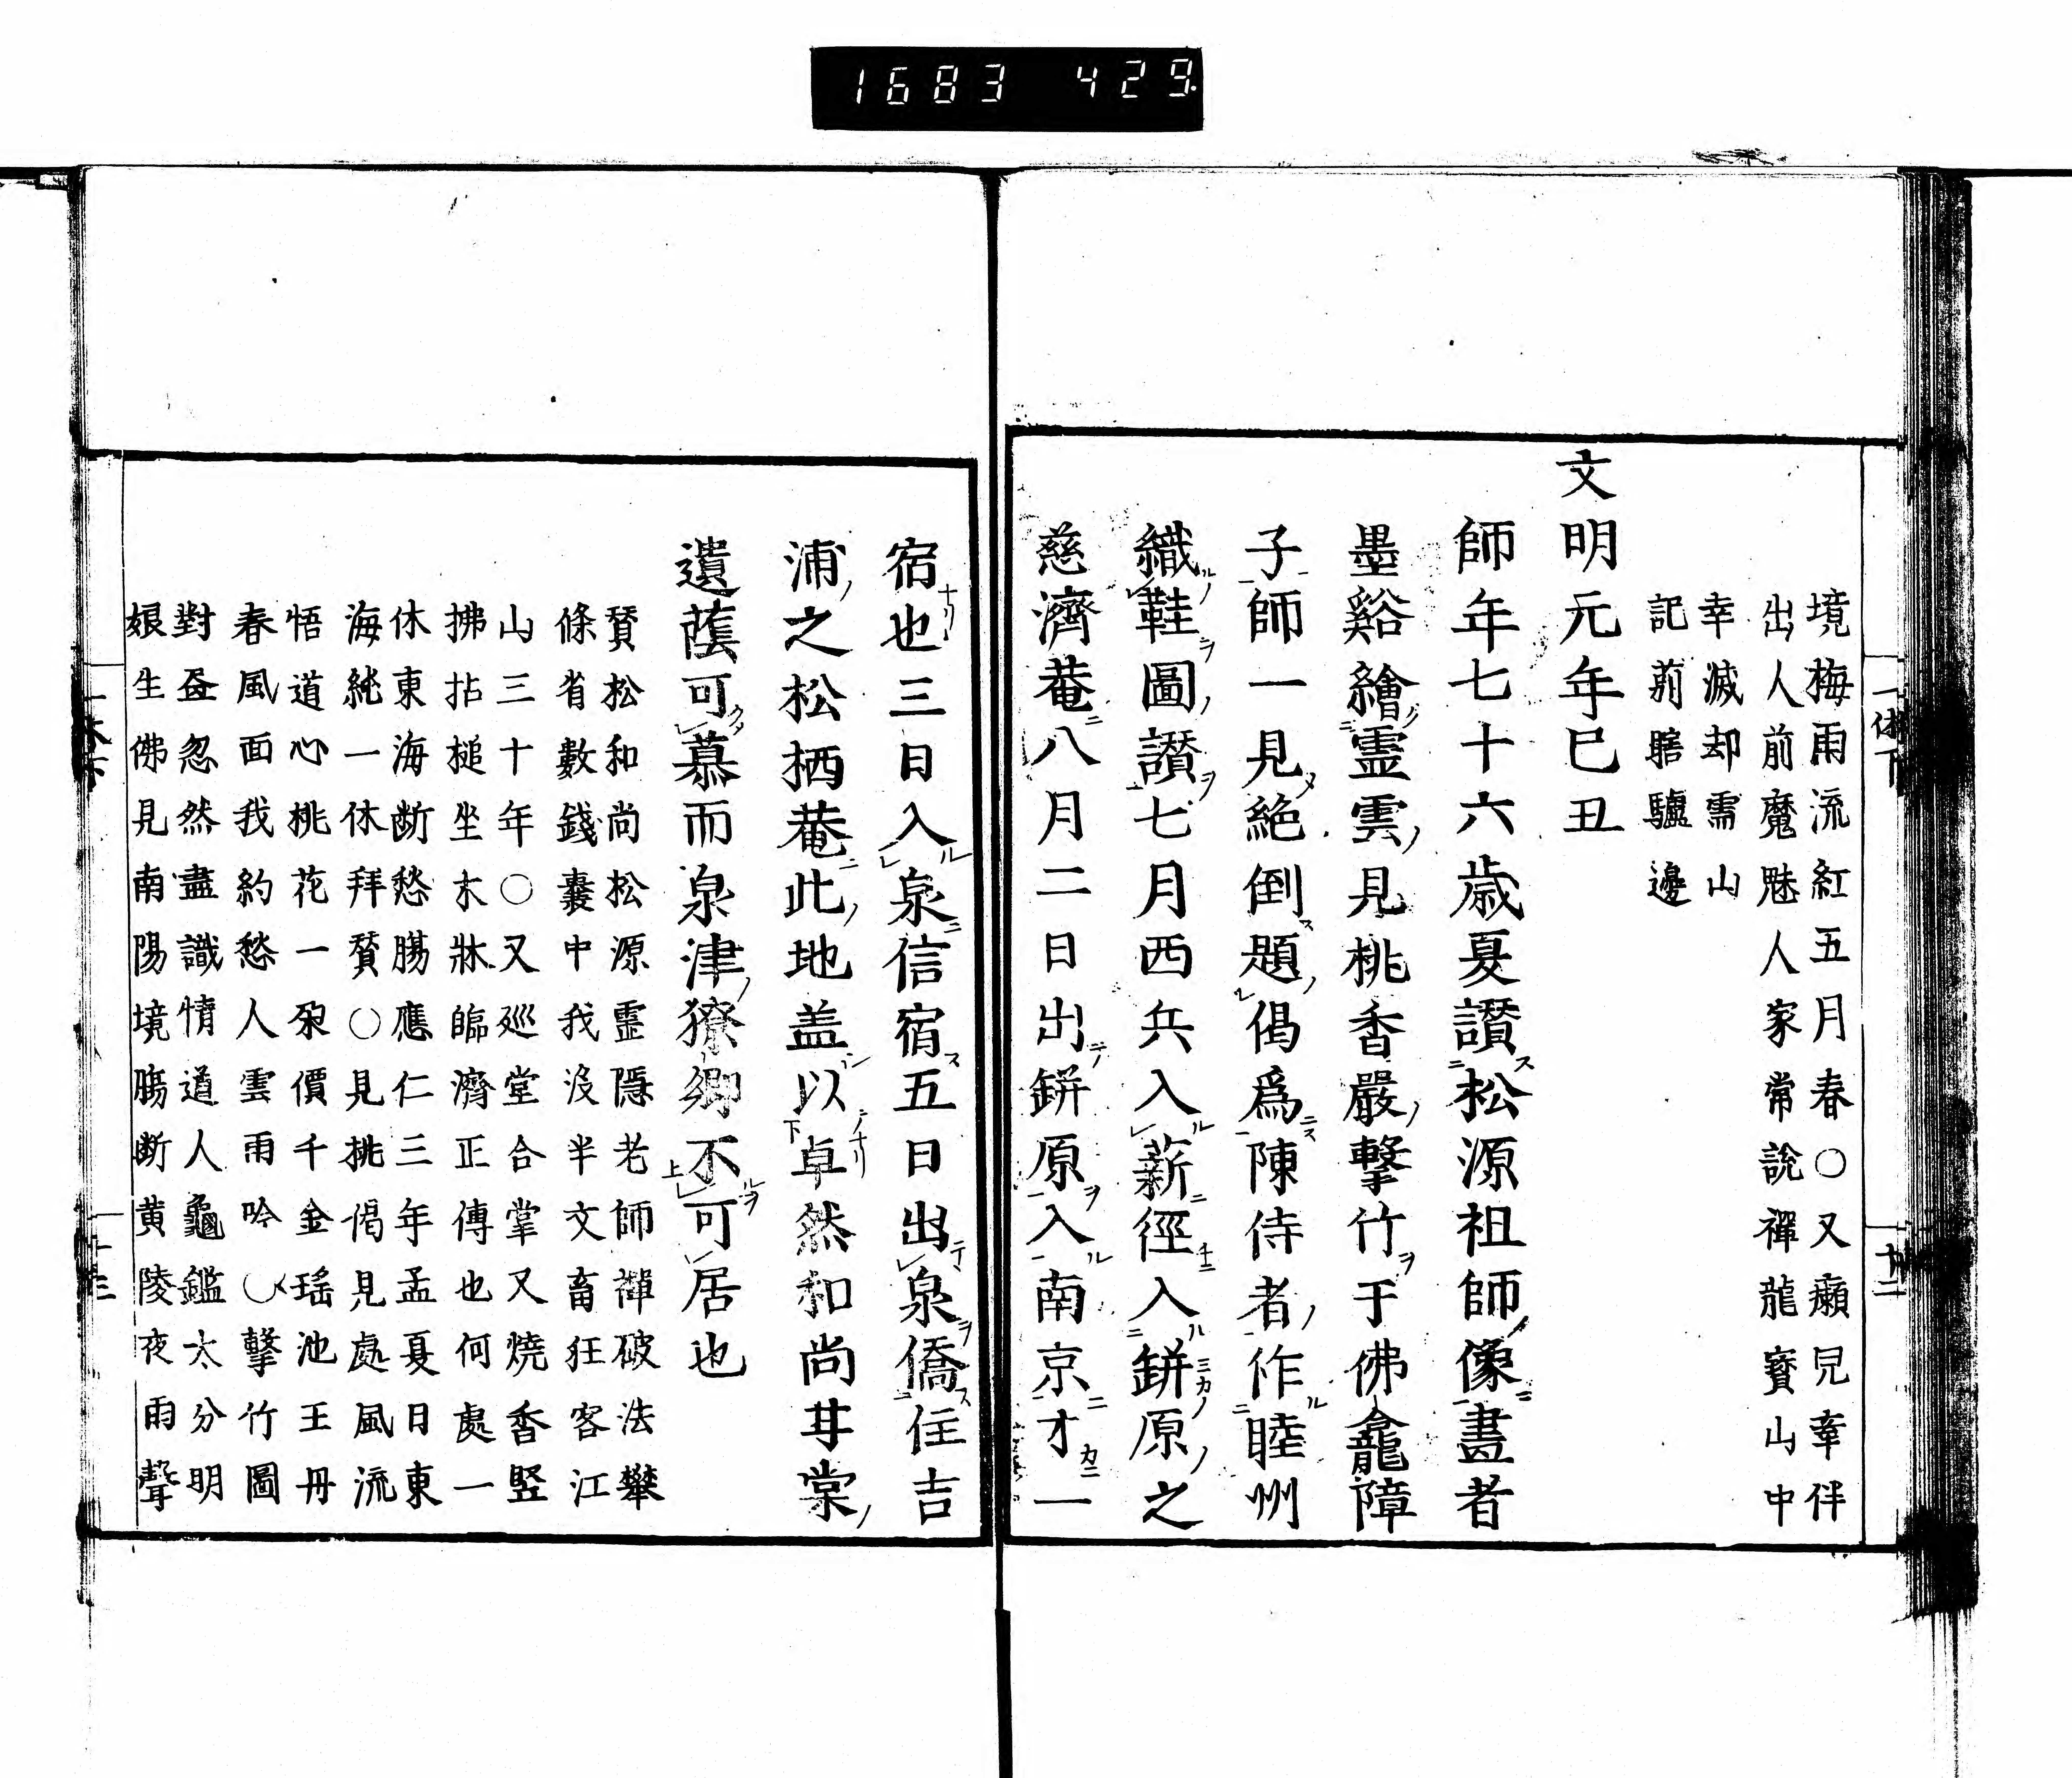 1683 429
境梅雨流紅五月春〇又癩兒牽伴
出人前魔魅人家常說禪龍寳山中
幸滅却需山
記前瞎驢邊
文明元年巳丑
師年七十六歳夏讃松源祖師像畫者
墨谿繪霊雲見桃香嚴擊竹于佛龕障
子師一見絶倒題偈爲陳侍者作睦州
織鞋圖讃七月西兵入薪徑入缾原之
慈濟菴八月二日出缾原入南京才一
宿也三日入泉信宿五日出泉僑住吉
浦之松栖菴此地盖以卓然和尚甘棠
遺蔭可慕而泉津獠卿不可居也
賛松和尚松源霊隠老師禪破法攀
條省數錢嚢中我没半文畜狂客江
山三十年〇又巡堂合掌又燒香竪
拂拈槌坐木牀臨濟正傳也何處一
休東海断愁腸應仁三年孟夏日東
海純一休拜賛〇見桃偈見處風流
悟道心桃花一朶價千金瑤池王母
春風面我約愁人雲雨吟〇擊竹圖
對盃忽然盡識情道人龜鑑太分明
娘生佛見南陽境膓断黄陵夜雨聲
一休下
十二